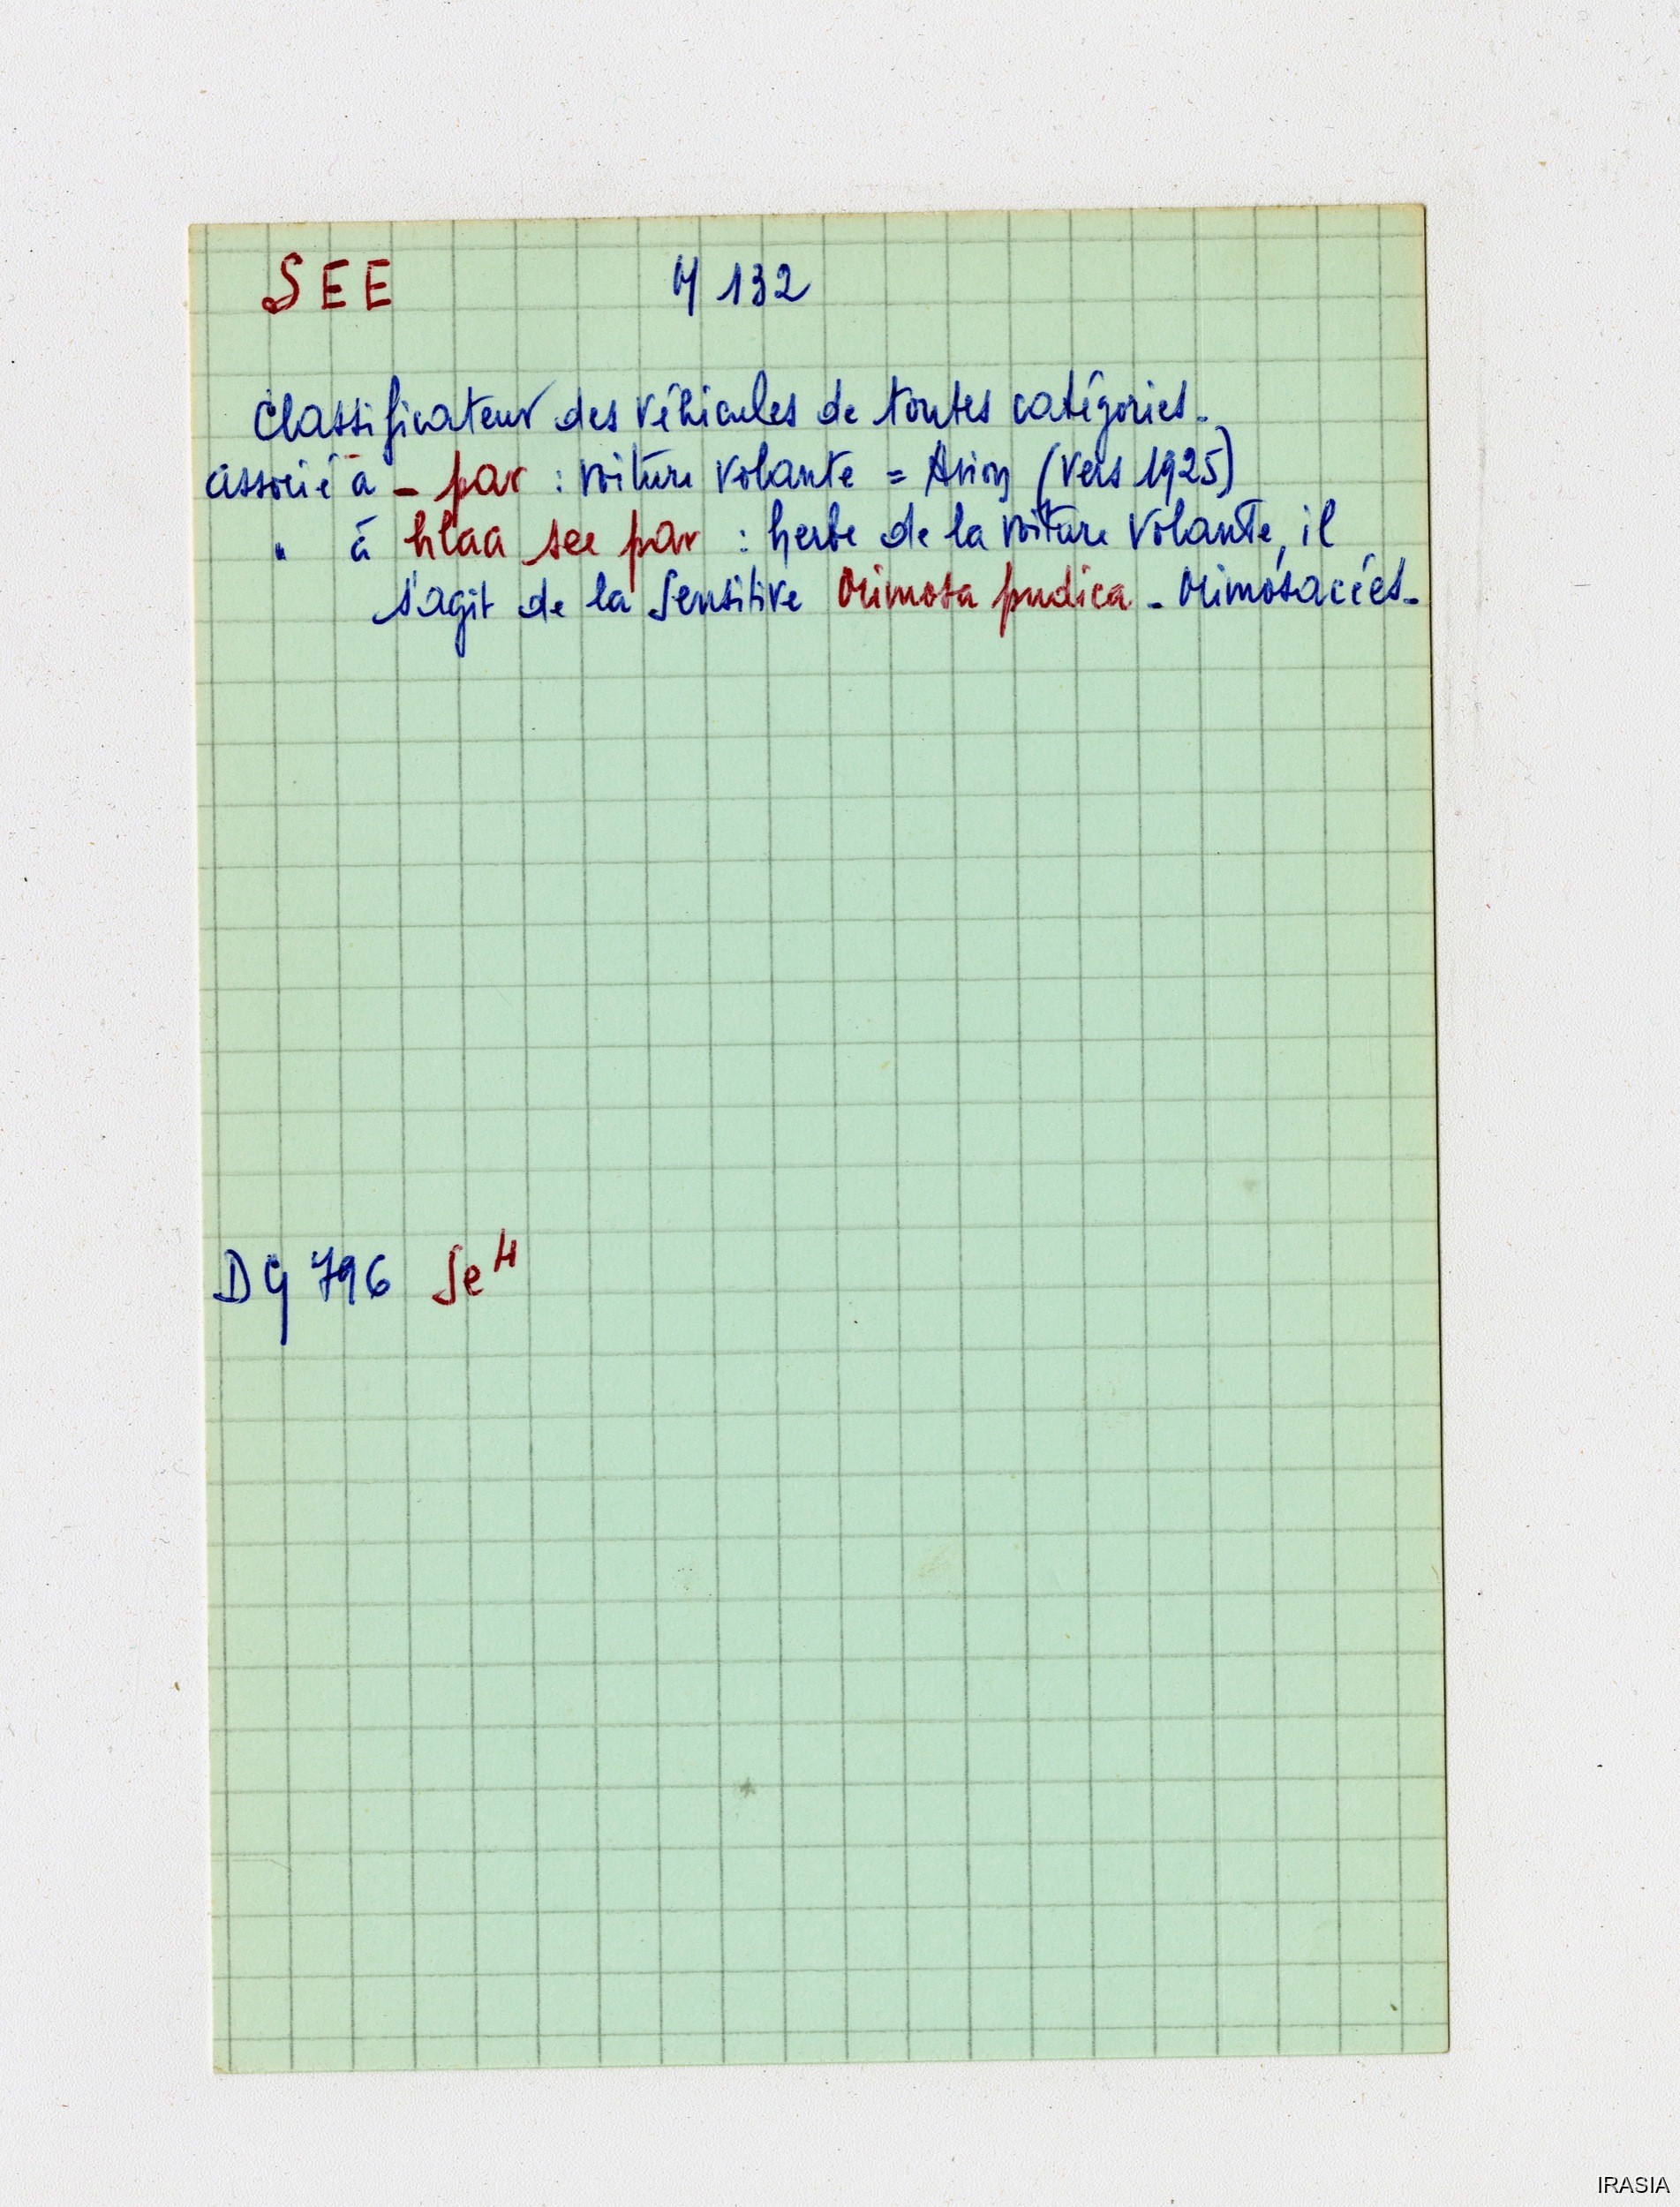 SEE M 132
Classificateur des véhicules de toutes catégories.
associé à - par : voiture volante = Avion (vers 1925)
" à hlaa see par : herbe de la voiture volante, il
s'agit de la Sensitive Mimosa pudica - Mimosacées.
DG 796 Se4
IRASIA